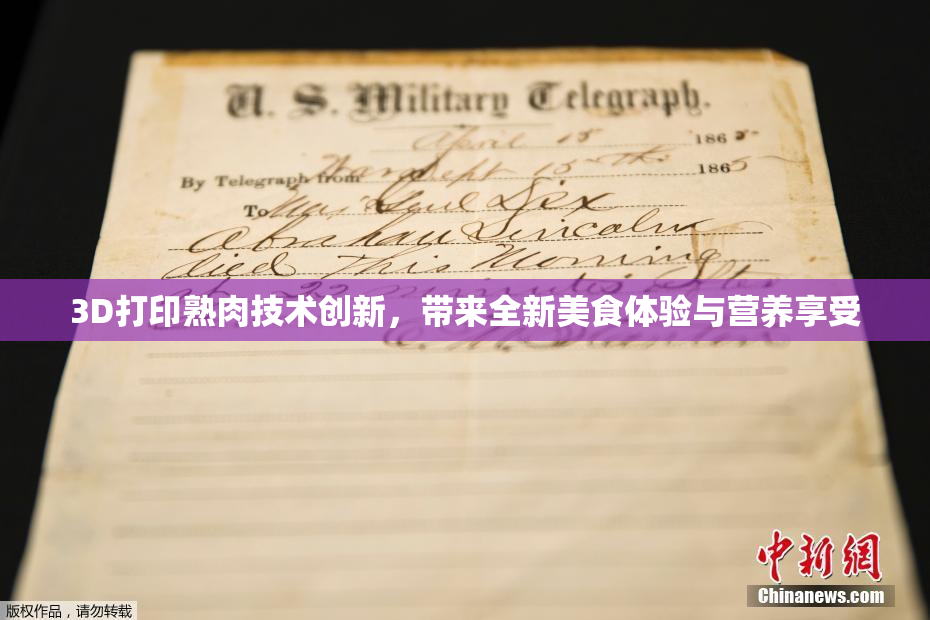 U. S. Military Telegraph.
April 15 1865
By Telegraph from War Dept 15th 1865
To Maj Genl Dix
Abraham Lincoln
died This Morning
at 22 minutes after
3D打印熟肉技术创新，带来全新美食体验与营养享受
E. M. Stanton
中新网
Chinanews.com
版权作品，请勿转载